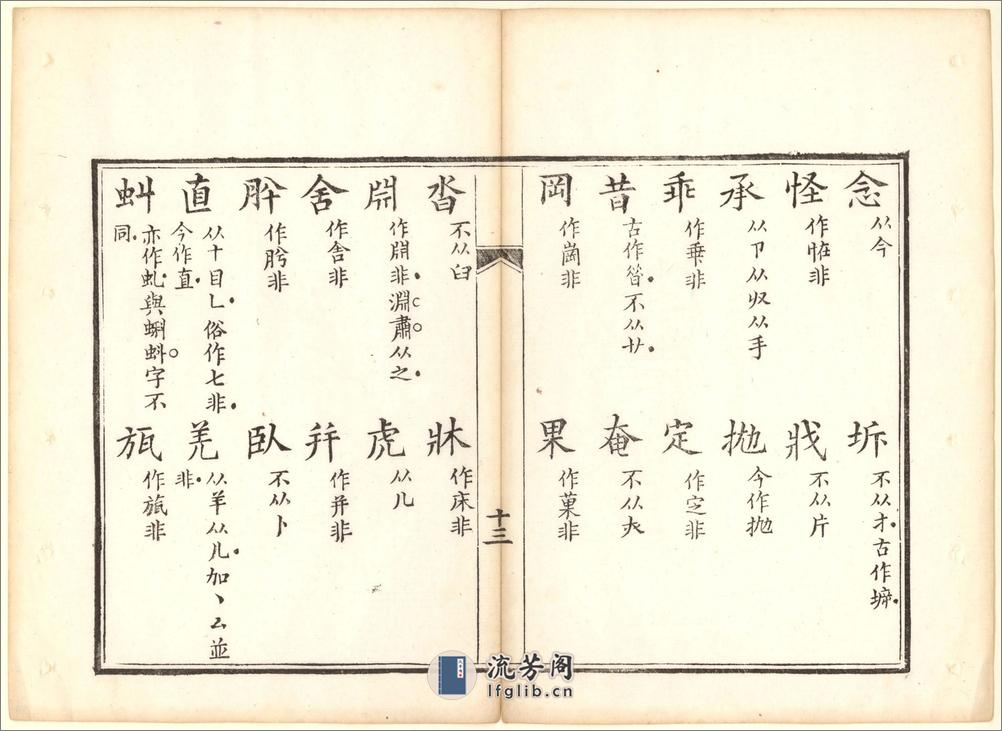 念 从今
坼 不从才古作𡍩
怪 作恠非
戕 不从片
承 从卩从収从手
拋 今作抛
乖 作乗非
定 作㝎非
昔 古作㫺不从廿
奄 不从大
岡 作崗非
果 作菓非
十三
沓 不从臼
牀 作床非
淵肅从之
虎 从儿
舍 作舎非
并 作并非
肸 作肹非
臥 不从卜
直 从十目乚俗作七非
今作直
羌 从羊从儿加丶厶並
非
虯 亦作虬與蝌蚪字不
同
瓬 作旊非
流芳阁
lfglib.cn